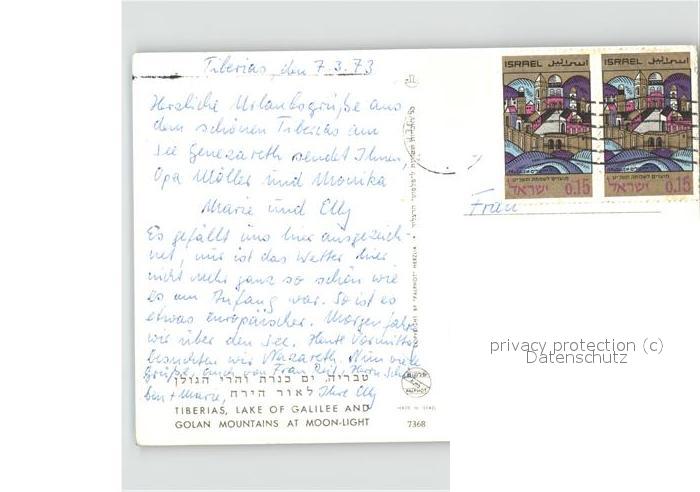 Tiberias, den 7.3.73
Herzliche Urlaubsgrüße aus
dem schönen Tiberias am
See Genezareth sendet Ihnen,
Opa Möller und Monika
Marie und Elly
Es gefällt uns hier ausgezeich-
net, nur ist das Wetter hier
nicht mehr ganz so schön wie
es am Anfang war. So ist es
etwas europäischer. Morgen fahr
wir über den See. Heute Vormitta
besuchten wir Nazareth. Nun viele
Grüße, auch von Frau Herrn
ben + Marie, Ihre Elly
טבריה, ים כנרת והרי הגולן
לאור הירח
TIBERIAS, LAKE OF GALILEE AND
GOLAN MOUNTAINS AT MOON-LIGHT
7368
MADE IN ISRAEL
COPYRIGHT BY "PALPHOT" HERZLIA
ISRAEL اسرائيل
ישראל 0.15
ISRAEL اسرائيل
ישראל 0.15
Frau
privacy protection (c)
Datenschutz